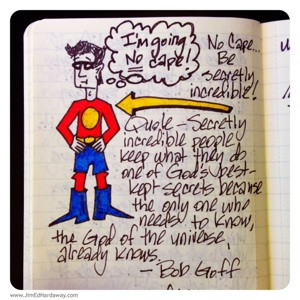 I'm going
No Cape!
No Cape...
Be
secretly
incredible!
Quote - Secretly
incredible people
keep what they do
one of God's best-
kept secrets because
the only one who
needs to know,
the God of the universe,
already knows.
- Bob Goff
www.JimEdHardaway.com